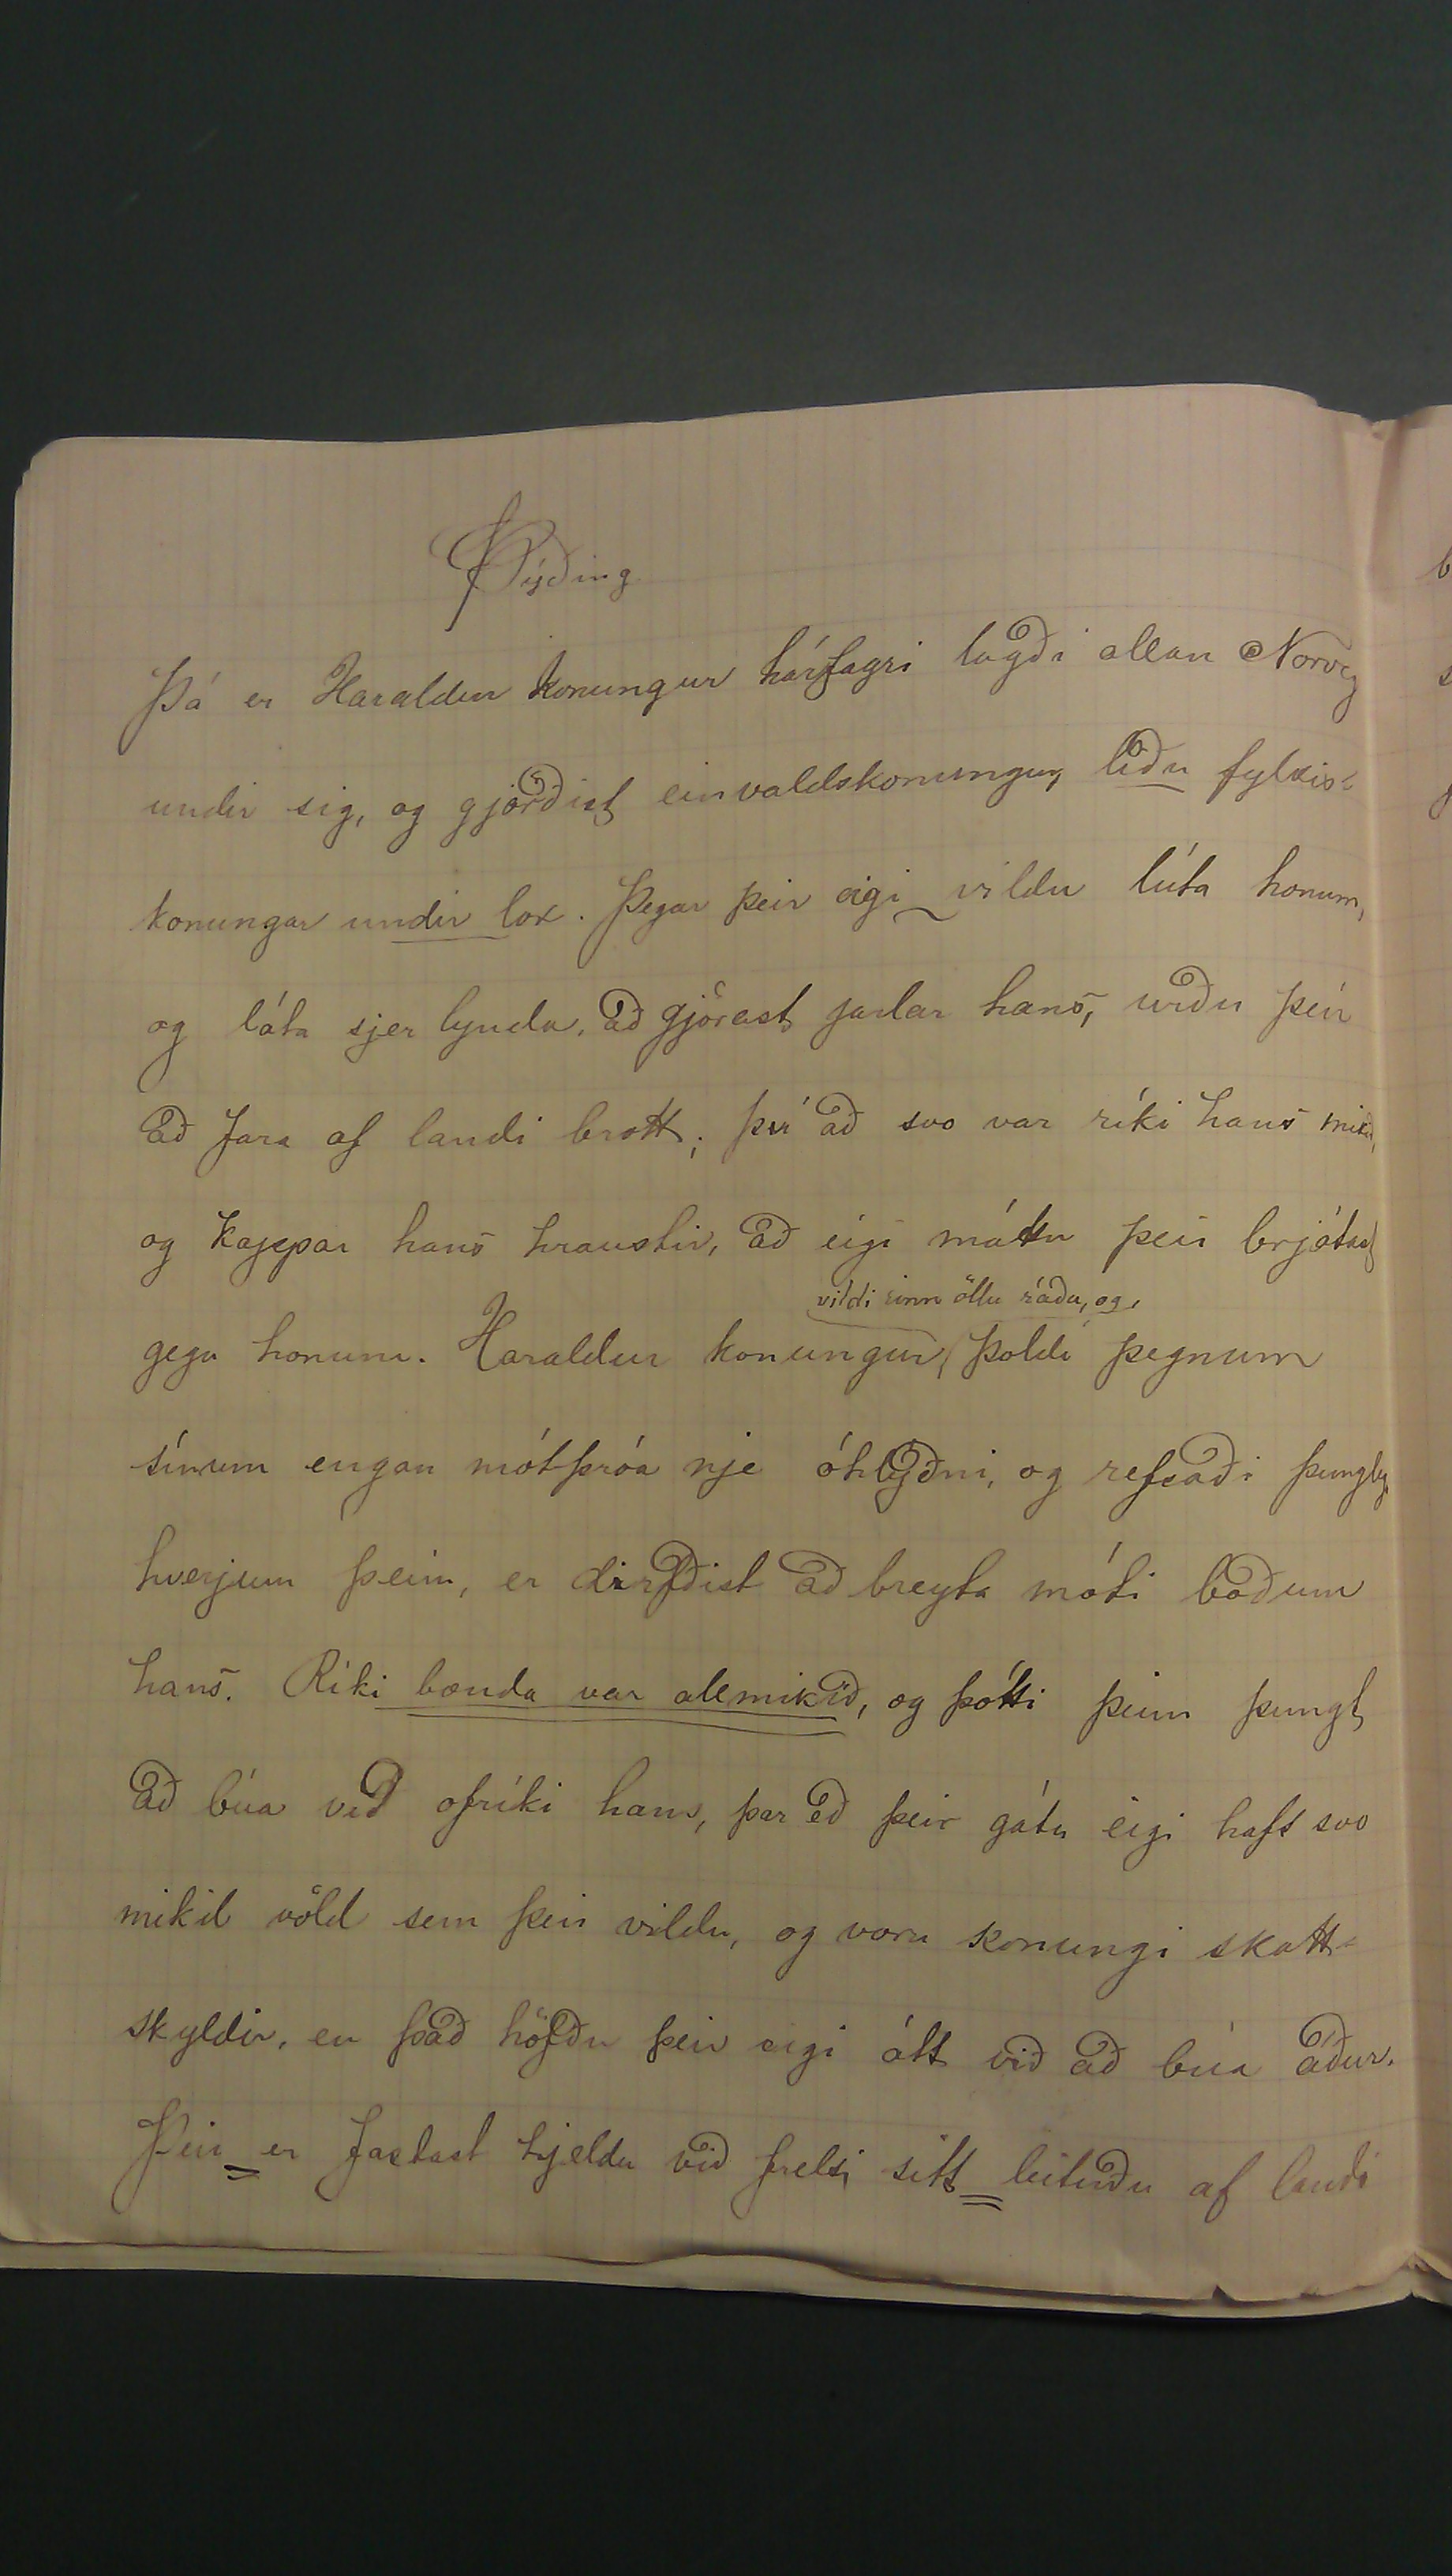 Þýðing
Þá er Haraldur konungur hárfagri lagði allan Noreg
undir sig, og gjörðist einvaldskonungur, liðu fylkis-
konungar undir lok. Þegar þeir eigi vildu lúta honum,
og láta sjer lynda, að gjörast jarlar hans, urðu þeir
að fara af landi brott; því að svo var ríki hans mikið,
og kappar hans hraustir, að eigi máttu þeir brjótast
vildi einn öllu ráða, og
gegn honum. Haraldur konungur þoldi þegnum
sínum engan mótþróa nje óhlýðni, og refsaði þungleg
hverjum þeim, er dirfðist að breyta móti boðum
hans. Ríki bænda var allmikið, og þótti þeim þungt
að búa við ofríki hans, þar eð þeir gátu eigi haft svo
mikil völd sem þeir vildu, og voru konungi skatt-
skyldir, en það höfðu þeir eigi átt við að búa áður.
Þeir er fastast hjeldu við frelsi sitt leituðu af landi